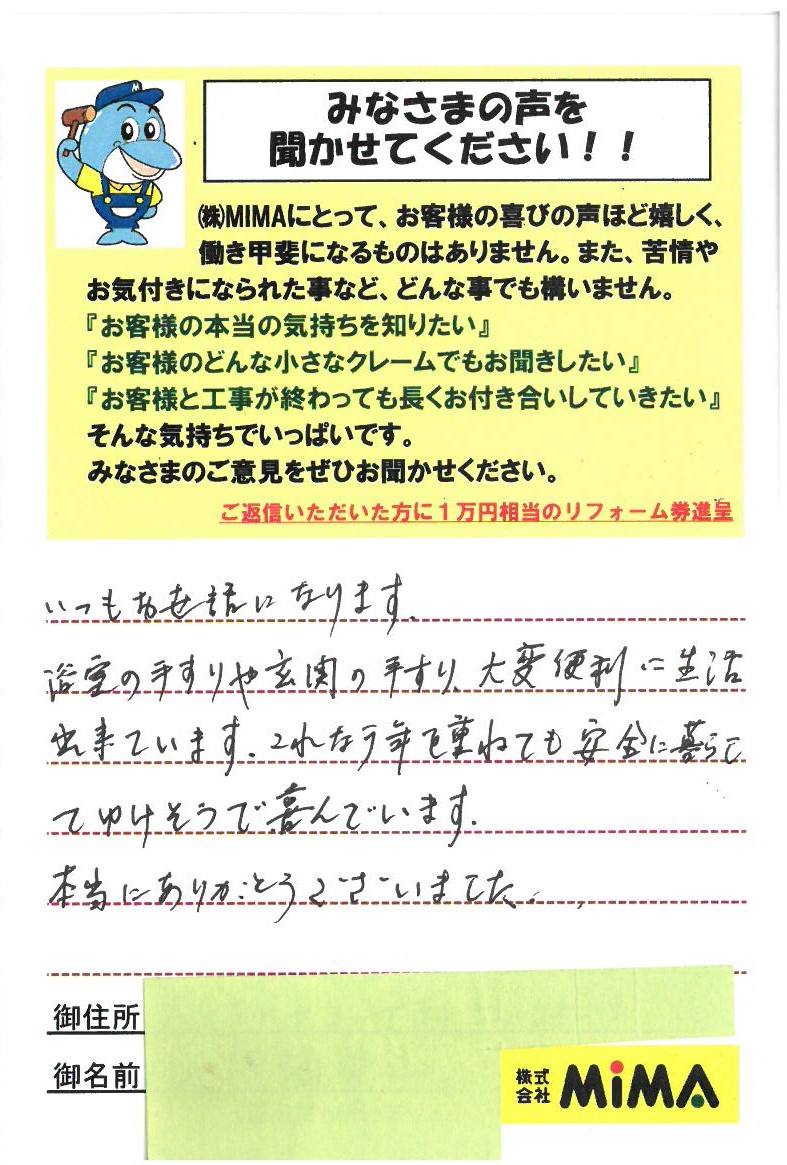 みなさまの声を
聞かせてください！！
㈱MIMAにとって、お客様の喜びの声ほど嬉しく、
働き甲斐になるものはありません。また、苦情や
お気付きになられた事など、どんな事でも構いません。
『お客様の本当の気持ちを知りたい』
『お客様のどんな小さなクレームでもお聞きしたい』
『お客様と工事が終わっても長くお付き合いしていきたい』
そんな気持ちでいっぱいです。
みなさまのご意見をぜひお聞かせください。
ご返信いただいた方に１万円相当のリフォーム券進呈
いつもお世話になります。
浴室の手すりや玄関の手すり、大変便利に生活
出来ています。これなら年を重ねても安全に暮らし
てゆけそうで喜んでいます。
本当にありがとうございました。
御住所
御名前
株式会社 MiMA
M